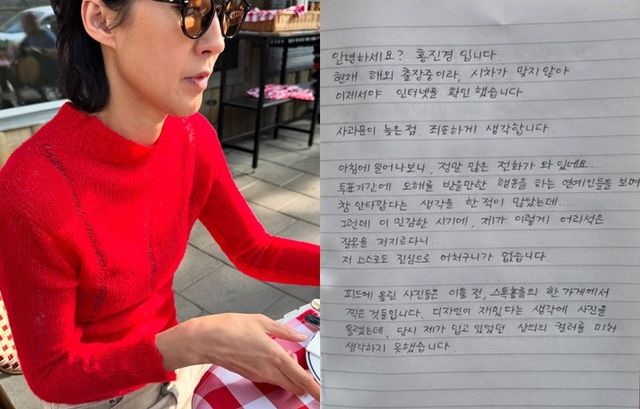 안녕하세요? 홍진경 입니다.
현재 해외 출장중이라, 시차가 맞지않아
이제서야 인터넷을 확인 했습니다
사과문이 늦은점 죄송하게 생각합니다
아침에 일어나보니, 정말 많은 전화가 와 있네요...
투표기간에 오해를 받을만한 행동을 하는 연예인들을 보며
참 안타깝다는 생각을 한 적이 많았는데...
그런데 이 민감한 시기에, 제가 이렇게 어리석은
잘못을 저지르다니...
저 스스로도 진심으로 어처구니가 없습니다.
피드에 올린 사진들은 이틀 전, 스톡홀름의 한 가게에서
찍은 것들입니다. 디자인이 재밌다는 생각에 사진을
올렸는데, 당시 제가 입고 있었던 상의의 컬러를 미처
생각하지 못했습니다.